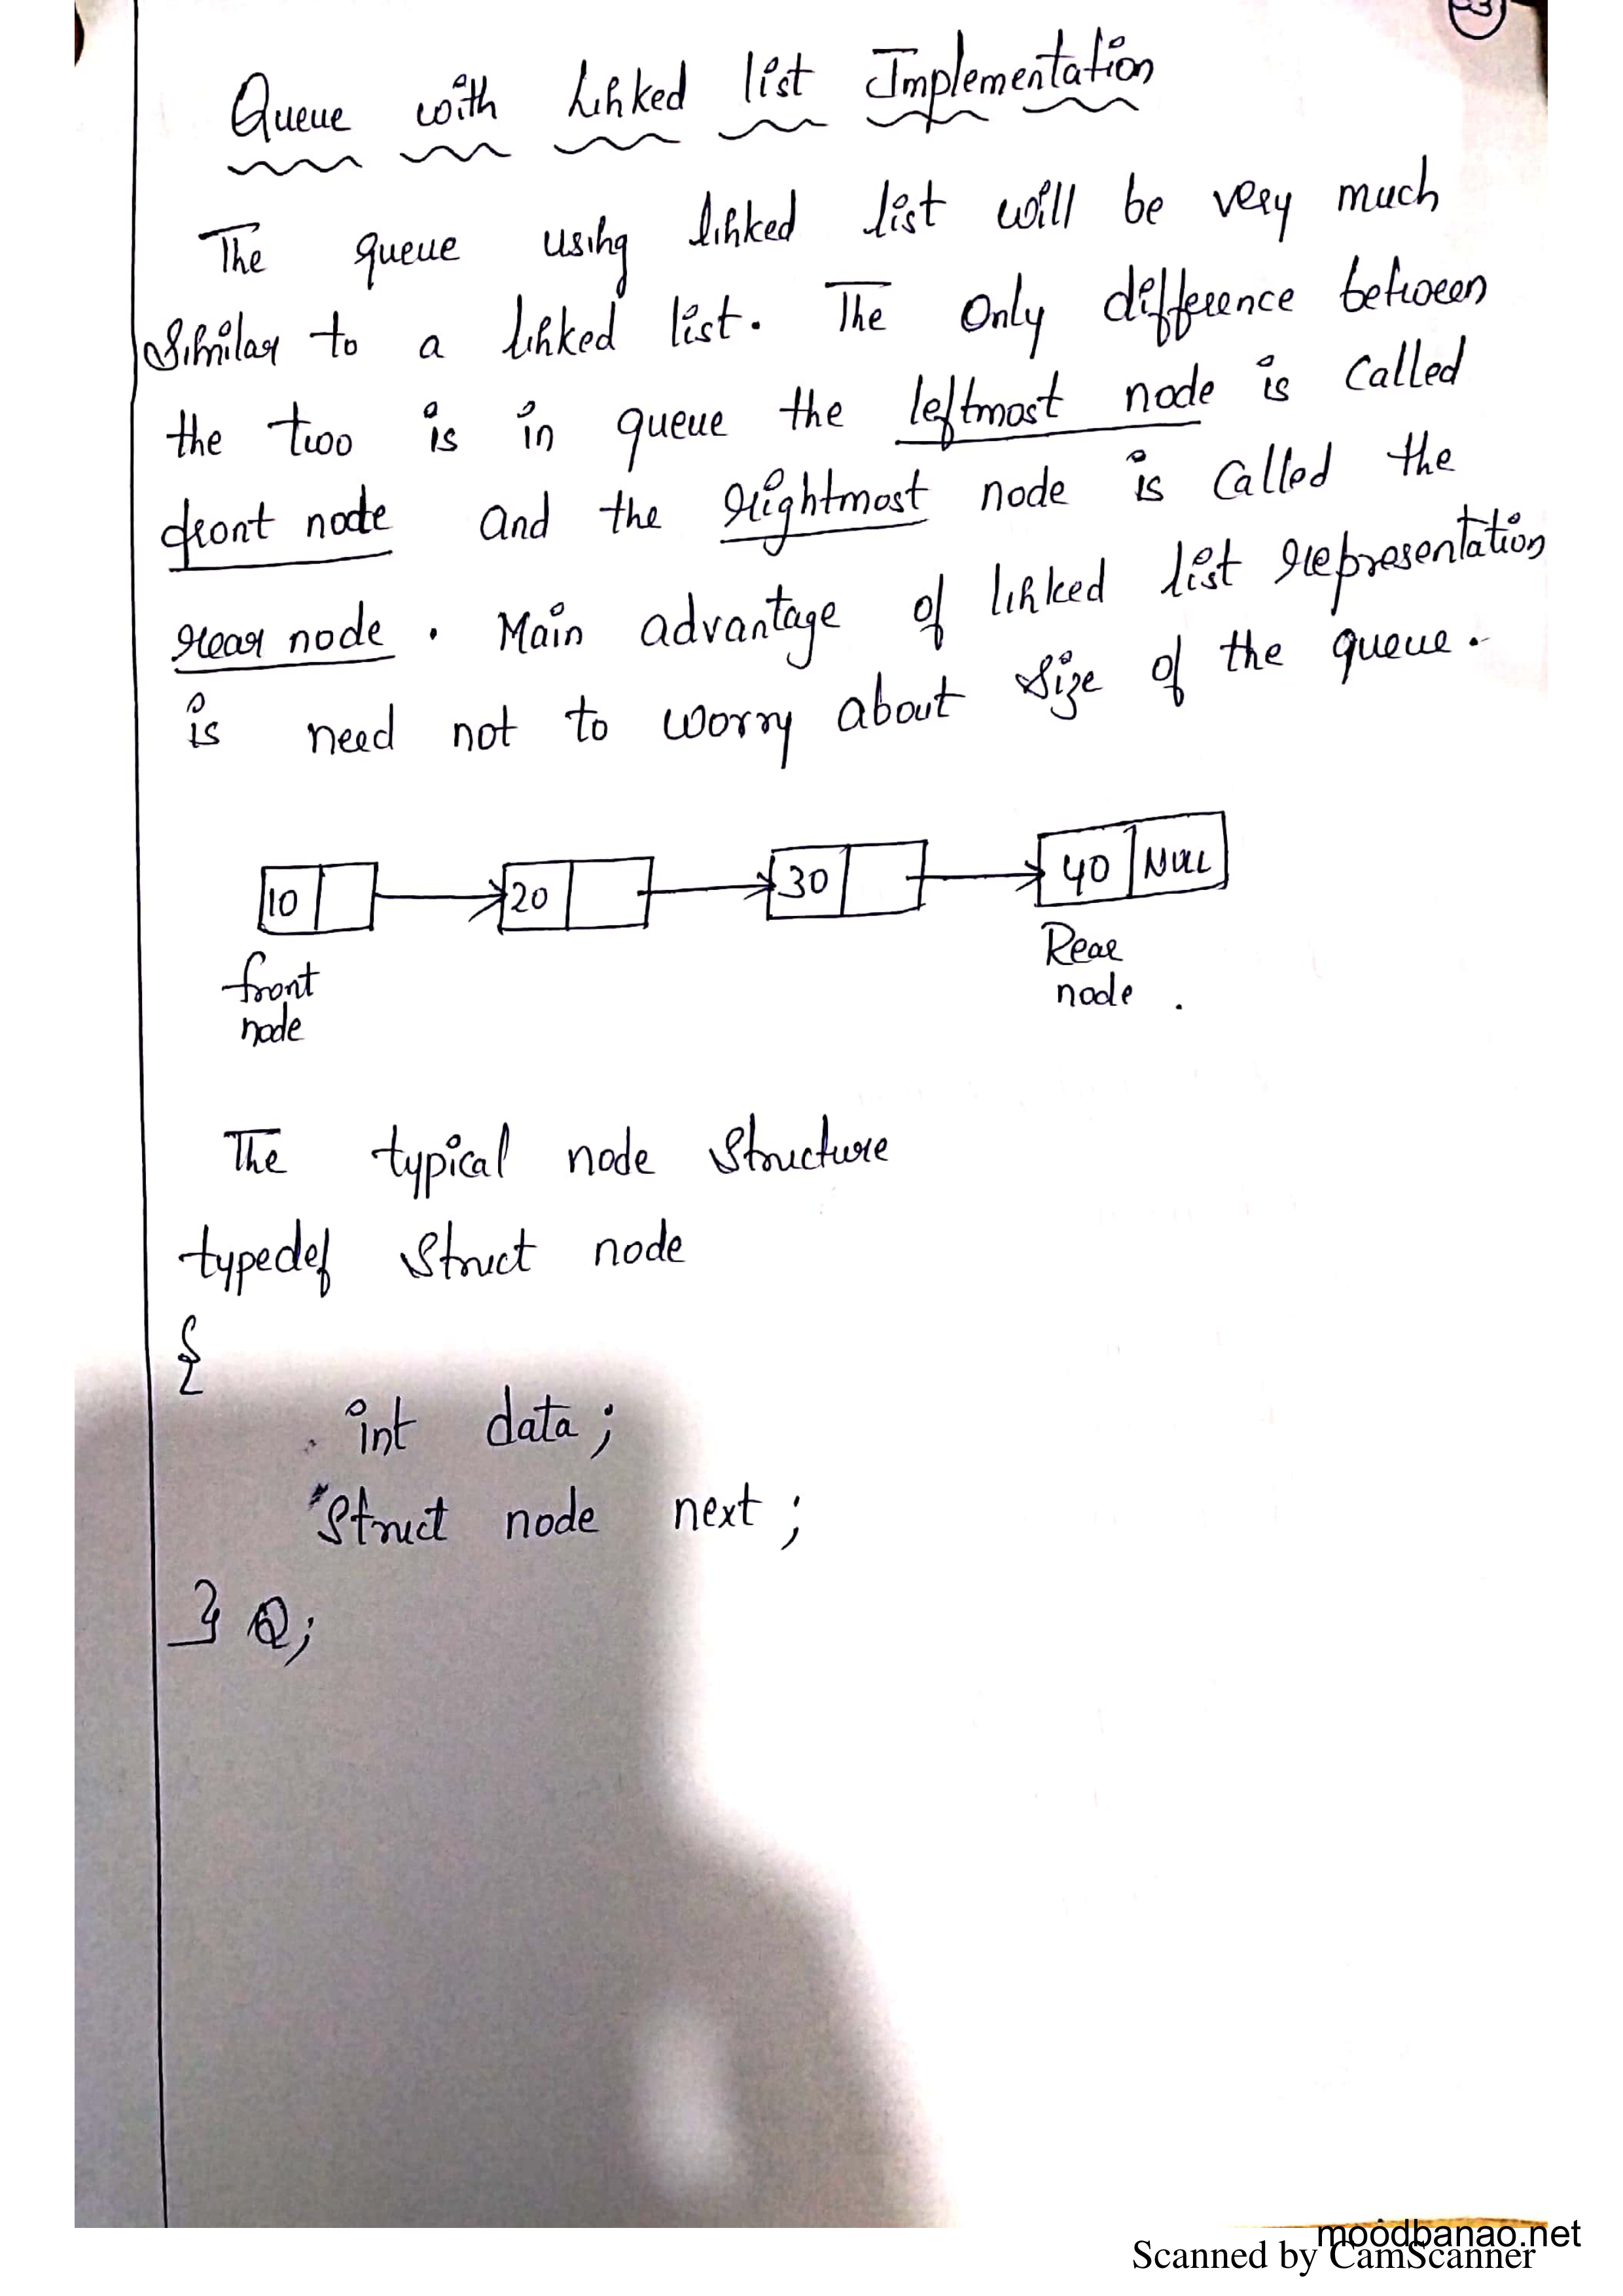 Queue with Linked list Implementation
The queue using linked list will be very much
Similar to a linked list. The Only difference between
the two is in queue the leftmost node is called
front node and the rightmost node is called the
rear node. Main advantage of linked list representation
is need not to worry about size of the queue.
10 20 30 40 NULL
front node
Rear node.
The typical node structure
typedef struct node
{
int data;
struct node next;
} Q;
moodbanao.net
Scanned by CamScanner